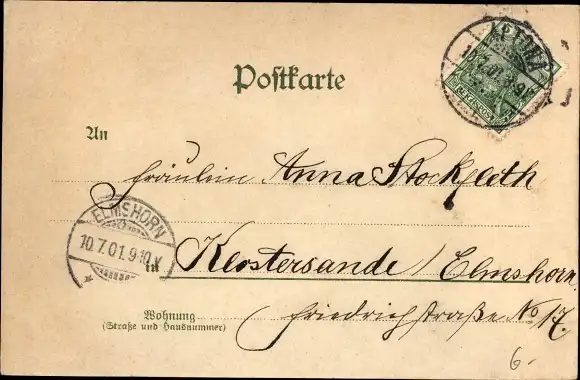 Postkarte
An
Fräulein Anna Stockfleth
ELMSHORN
10.7.01.9-10.V
in Klostersande / Elmshorn.
Wohnung
(Straße und Hausnummer)
Friedrichstraße No 17.
6.-